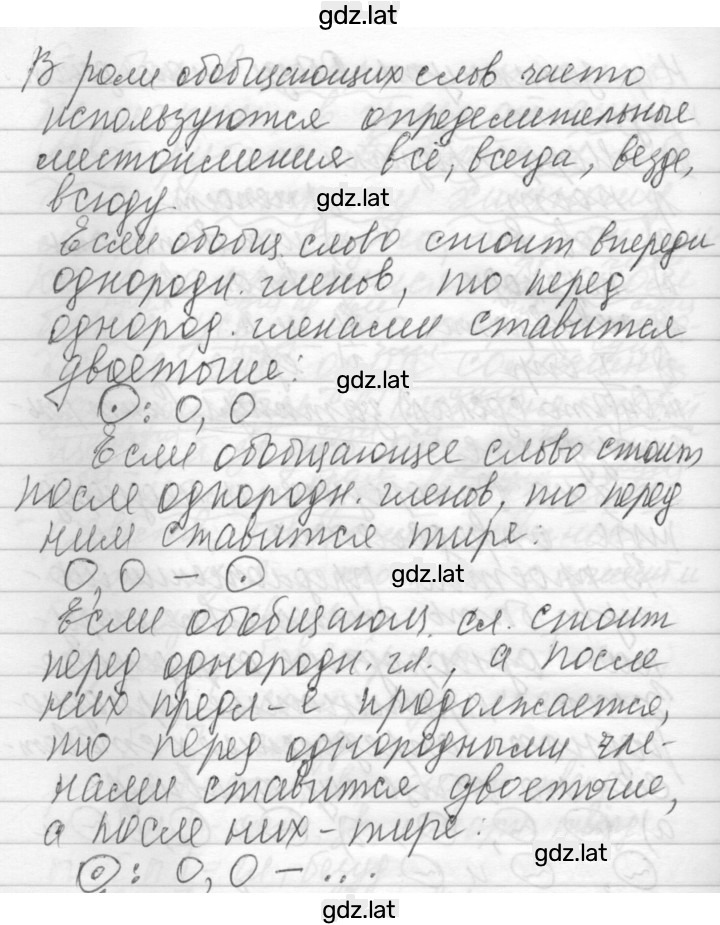 gdz.lat
В роли обобщающих слов часто
используются определительные
местоимения всё, всегда, везде,
всюду.
gdz.lat
Если обобщ. слово стоит впереди
однородн. членов, то перед
однород. членами ставится
двоеточие:
gdz.lat
⊙: О, О
Если обобщающее слово стоит
после однородн. членов, то перед
ним ставится тире:
О, О – ⊙
gdz.lat
Если обобщающ. сл. стоит
перед однородн. чл., а после
них предл-е продолжается,
то перед однородными чле-
нами ставится двоеточие,
а после них – тире:
gdz.lat
⊙: О, О – ... .
gdz.lat